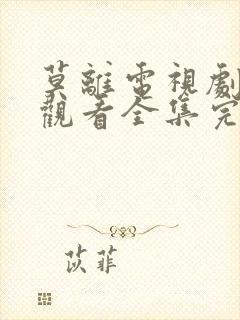 莫離電視劇
觀看全集完
苡菲